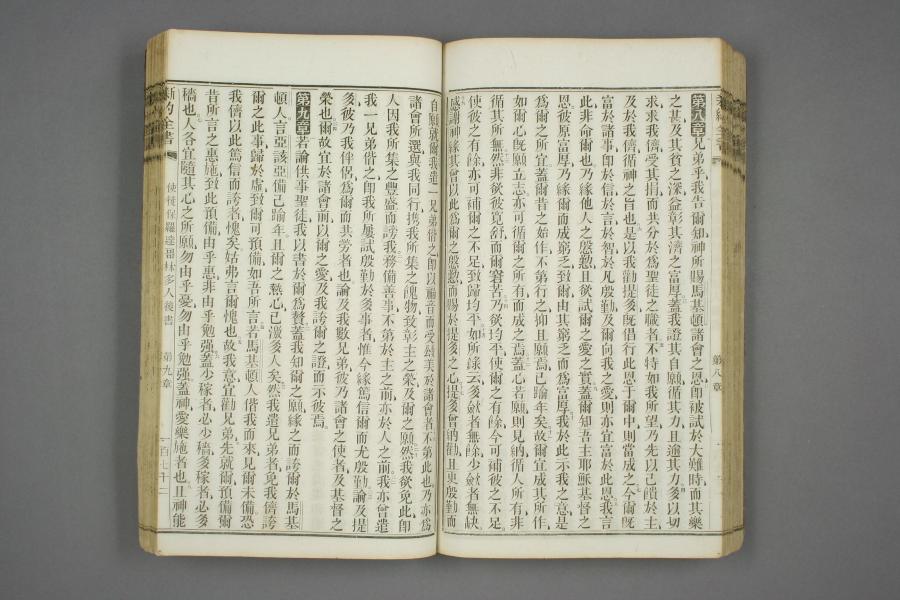 第八章兄弟乎我告爾知神所賜馬基頓諸會之恩卽被試於大難時而其樂
之甚及其貧之深益彰其濟之富厚蓋我證其自願循其力且逾其力多以切
求求我儕受其捐而共分於爲聖徒之職者不特如我所望乃先以己餽於主
及於我儕循神之旨也是以我勸提多旣倡行此恩于爾中則當成之今爾旣
富於諸事卽於信於言於智於凡殷勤及爾向我之愛則亦宜富於此恩我言
此非命爾也乃緣他人之殷懃且欲試爾之愛之實蓋爾知吾主耶穌基督之
恩彼原富厚乃緣爾而成窮乏致爾由其窮乏而爲富厚我於此示我之意是
爲爾之所宜蓋爾昔之始作不第行之抑且願焉已踰年矣故爾宜成其所作
如爾心旣願立志亦可循爾之所有而成之焉蓋心若願則見納循人所有非
循其所無然非欲彼寬舒而爾窘苦乃欲均平使爾之有餘今可補彼之不足
使彼之有餘亦可補爾之不足致歸均平如所錄云多斂者無餘少斂者無缺
感謝神緣其會以此爲爾之殷懃而賜於提多之心提多曾納勸且更殷勤而
自願就爾我遣一兄弟偕之卽以福音而受頌美於諸會者不第此也乃亦爲
諸會所選與我同行携我所集之餽物致彰主之榮及爾之願然我欲免此卽
人因我所集之豐盛而謗我務備善事不第於主之前亦於人之前我亦曾遣
我一兄弟偕之卽我所屢試殷勤於多事者惟今緣篤信爾而尤殷勤論及提
多彼乃我伴侶爲爾而共勞者也論及我數兄弟彼乃諸會之使者及基督之
榮也爾故宜於諸會前以爾之愛及我誇爾之證而示彼焉
第九章若論供事聖徒我以書於爾爲贅蓋我知爾之願緣之而誇爾於馬基
頓人言亞該亞備已踰年且爾之熱心已激多人矣然我遣兄弟者免我儕誇
爾之此事歸於虛致爾可預備如吾所言若馬基頓人偕我而來見爾未備恐
我儕以此篤信而誇者愧矣姑弗言爾愧也故我意宜勸兄弟先就爾預備爾
昔所言之惠施致此預備由乎惠非由乎勉强蓋少稼者必少穡多稼者必多
穡也人各宜隨其心之所願勿由乎憂勿由乎勉强蓋神愛樂施者也且神能
新約全書
使徒保羅達哥林多人後書
第九章
一百七十二
第八章